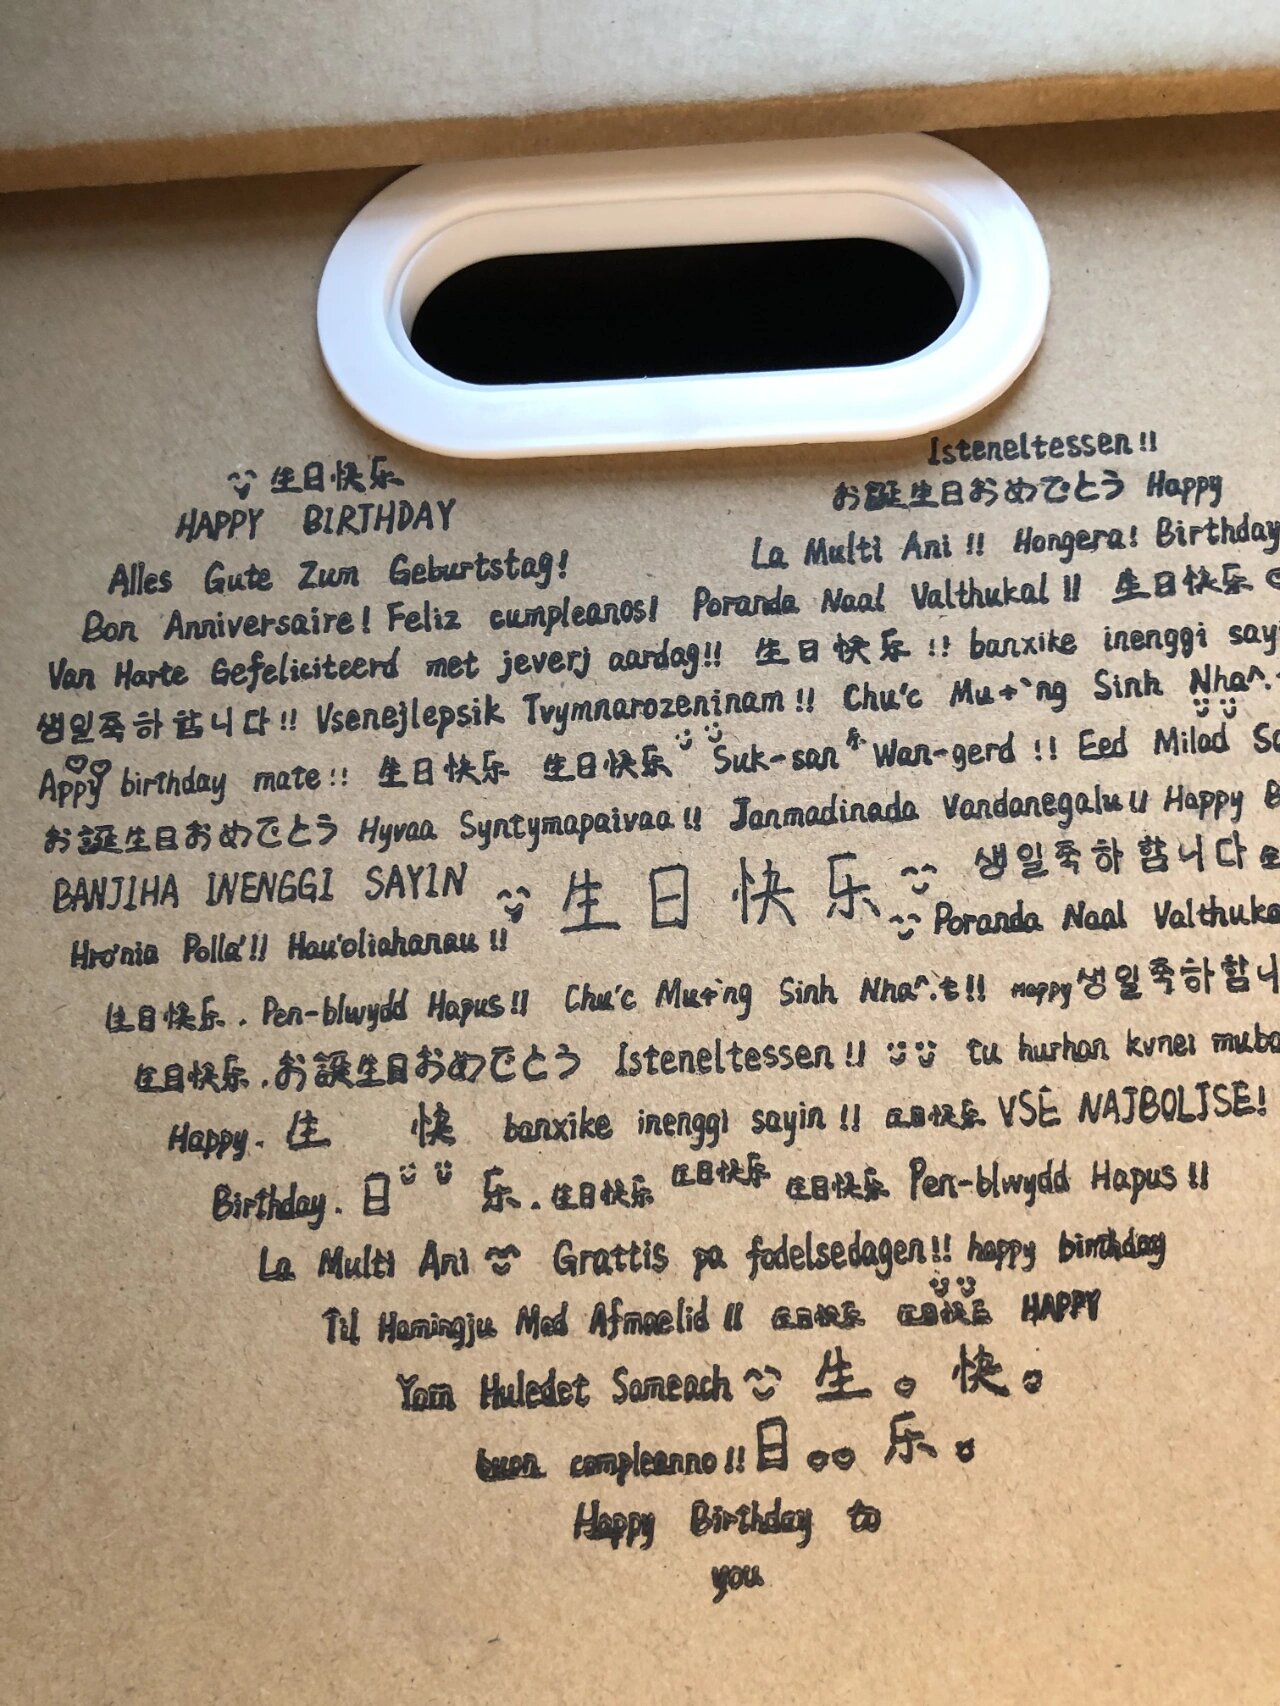 生日快乐
HAPPY BIRTHDAY
Isteneltessen!!
お誕生日おめでとう Happy
Alles Gute Zum Geburtstag!
La Multi Ani!! Hongera! Birthday
Bon Anniversaire! Feliz cumpleanos! Poranda Naal Valthukal!! 生日快乐
Van Harte Gefeliciteerd met jeverj aardag!! 生日快乐!! banxike inenggi sayi
생일축하합니다!! Vsenejlepsik Tvymnarozeninam!! Chu'c Mu+`ng Sinh Nha^.
Appy birthday mate!! 生日快乐 生日快乐 Suk-san Wan-gerd!! Eed Milad
お誕生日おめでとう Hyvaa Syntymapaivaa!! Janmadinada Vandanegalu!! Happy B
BANJIHA INENGGI SAYIN 生日快乐 생일축하합니다
Hro'nia Polla'!! Hau'oliahanau!! Poranda Naal Valthuka
生日快乐. Pen-blwydd Hapus!! Chu'c Mu+`ng Sinh Nha^.t!! Happy 생일축하합니
生日快乐.お誕生日おめでとう Isteneltessen!! tu hurhan kvnei muba
Happy. 生 快 banxike inenggi sayin!! 生日快乐 VSE NAJBOLJSE!
Birthday. 日 乐. 生日快乐 生日快乐 生日快乐 Pen-blwydd Hapus!!
La Multi Ani Grattis pa fodelsedagen!! happy birthday
Til Hamingju Med Afmaelid!! 生日快乐 生日快乐 HAPPY
Yom Huledet Sameach 生 。 快 。
buon compleanno!! 日 。。 乐 。
Happy Birthday to
you